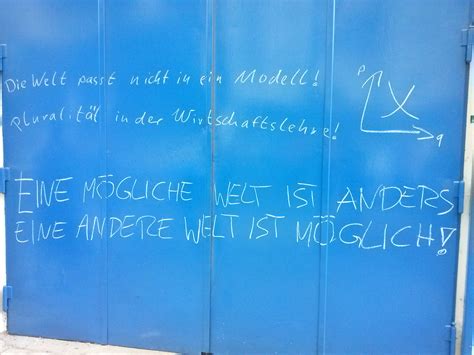 Die Welt passt nicht in ein Modell!
Pluralität in der Wirtschaftslehre!
p
q
EINE MÖGLICHE WELT IST ANDERS
EINE ANDERE WELT IST MÖGLICH!